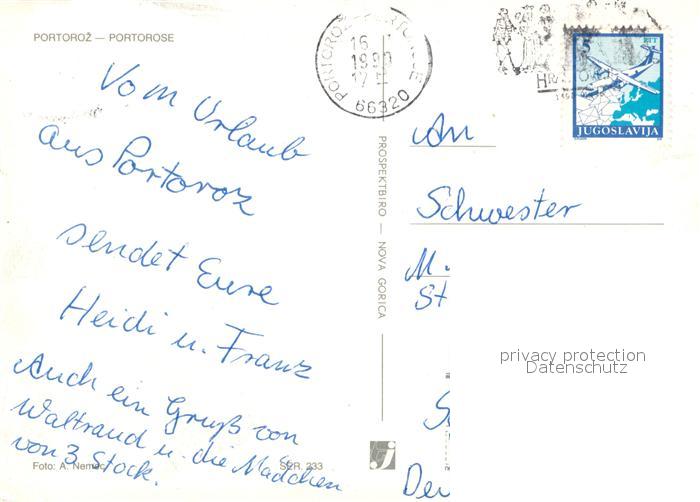 PORTOROŽ — PORTOROSE
Vom Urlaub
aus Portoroz
sendet Eure
Heidi u. Franz
Auch ein Gruß von
Waltraud u. die Mädchen
von 3. Stock.
Foto: A. Nemec SER. 233
PROSPEKTBIRO — NOVA GORICA
66320
5
PTT
JUGOSLAVIJA
An
Schwester
M.
St
privacy protection
Datenschutz